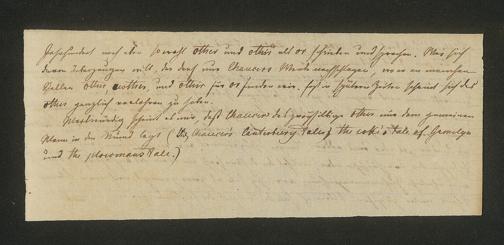 Jahrhundert noch den sowohl other und othir als or schrieben und sprachen. Wer sich
davon überzeugen will, der darf nur Chaucers Werke nachschlagen, wo er an manchen
Stellen other, und othir für or finden wird. In spätern Zeiten scheint sich das
other gänzlich verloren zu haben.
Merkwürdig scheint es mir, daß Chaucer das zweisilbige other nur dem gemeinen
Mann in den Mund legt (Chaucer's Canterbury Tales the coke's tale of Gamelyn
und the plowmans tale.)